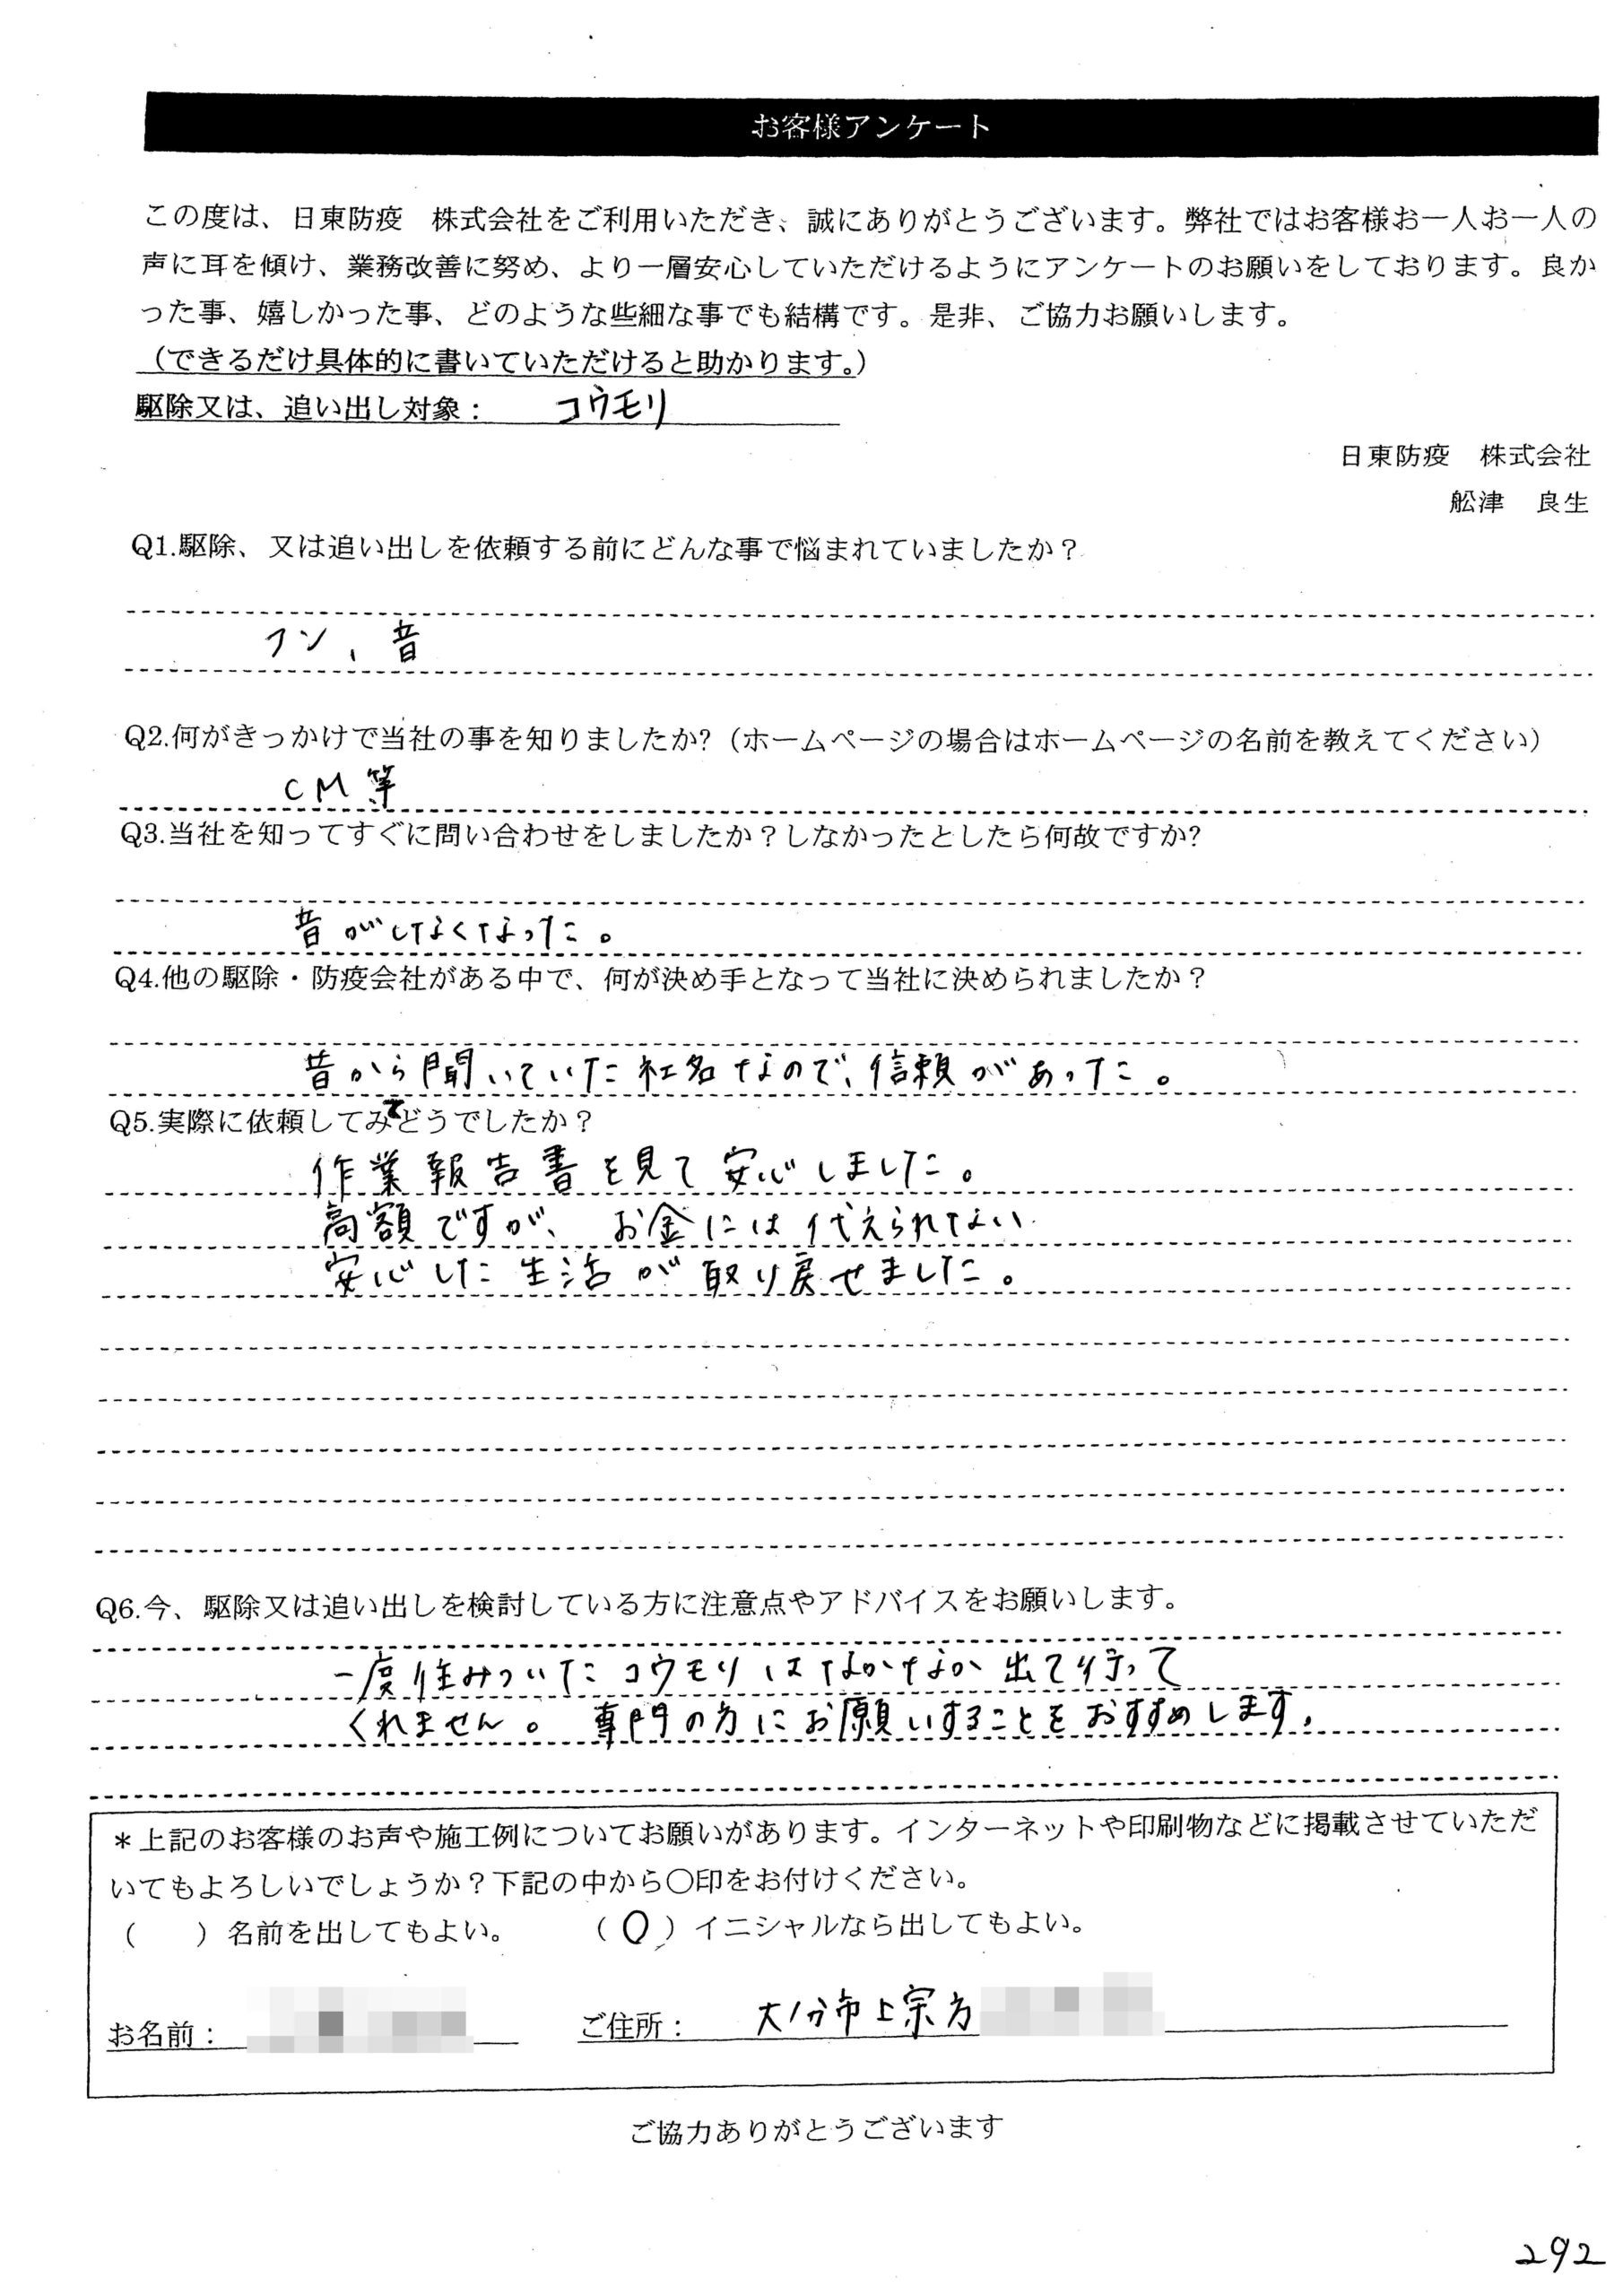 お客様アンケート
この度は、日東防疫　株式会社をご利用いただき、誠にありがとうございます。弊社ではお客様お一人お一人の
声に耳を傾け、業務改善に努め、より一層安心していただけるようにアンケートのお願いをしております。良か
った事、嬉しかった事、どのような些細な事でも結構です。是非、ご協力お願いします。
（できるだけ具体的に書いていただけると助かります。）
駆除又は、追い出し対象： コウモリ
日東防疫　株式会社
舩津　良生
Q1.駆除、又は追い出しを依頼する前にどんな事で悩まれていましたか？
フン、音
Q2.何がきっかけで当社の事を知りましたか?（ホームページの場合はホームページの名前を教えてください）
CM等
Q3.当社を知ってすぐに問い合わせをしましたか？しなかったとしたら何故ですか?
音がしなくなった。
Q4.他の駆除・防疫会社がある中で、何が決め手となって当社に決められましたか？
昔から聞いていた社名なので、信頼があった。
Q5.実際に依頼してみてどうでしたか？
作業報告書を見て安心しました。
高額ですが、お金には代えられない
安心した生活が取り戻せました。
Q6.今、駆除又は追い出しを検討している方に注意点やアドバイスをお願いします。
一度住みついたコウモリはなかなか出て行って
くれません。専門の方にお願いすることをおすすめします。
＊上記のお客様のお声や施工例についてお願いがあります。インターネットや印刷物などに掲載させていただ
いてもよろしいでしょうか？下記の中から〇印をお付けください。
（　　）名前を出してもよい。　　（〇）イニシャルなら出してもよい。
お名前：　　ご住所： 大分市上宗方
ご協力ありがとうございます
292